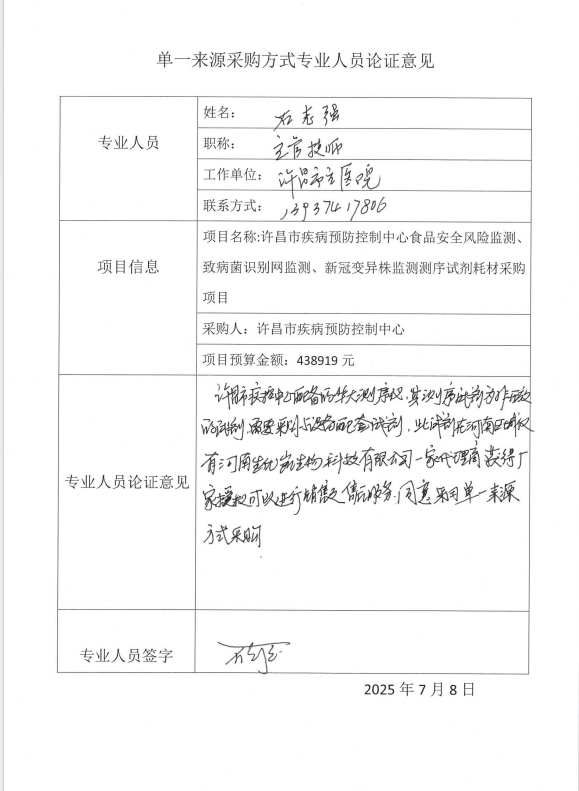 单一来源采购方式专业人员论证意见
专业人员
姓名：石志强
职称：主管技师
工作单位：许昌市立医院
联系方式：13937417806
项目信息
项目名称:许昌市疾病预防控制中心食品安全风险监测、
致病菌识别网监测、新冠变异株监测测序试剂耗材采购
项目
采购人：许昌市疾病预防控制中心
项目预算金额：438919 元
专业人员论证意见
许昌市疾控中心配备的华大测序仪，其测序试剂为
的试剂，需要采购与设备配套试剂，此试剂在河南区域仅
有河南生物科技有限公司一家代理商获得厂
家授权可以进行销售及售后服务，同意采用单一来源
方式采购
专业人员签字
2025 年 7 月 8 日